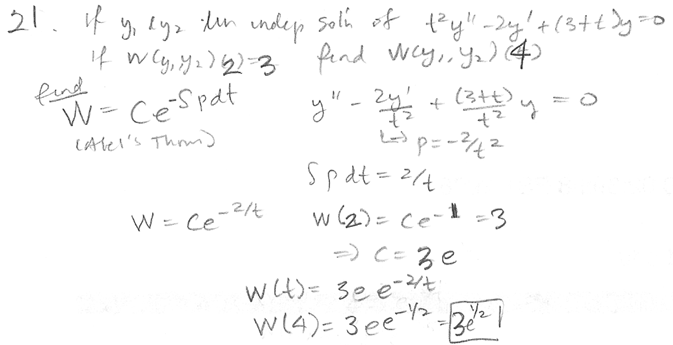 21. If y₁ & y₂ lin indep solⁿ of t²y'' - 2y' + (3+t)y = 0
if W(y₁, y₂)(2) = 3 find W(y₁, y₂)(4)
find
W = Ce^-∫pdt y'' - 2y'/t² + (3+t)/t² y = 0
(Abel's Thom) ↳ p = -2/t²
∫pdt = 2/t
W = Ce^-2/t W(2) = Ce^-1 = 3
⇒ C = 3e
W(t) = 3e e^-2/t
W(4) = 3ee^-1/2 = 3e^1/2